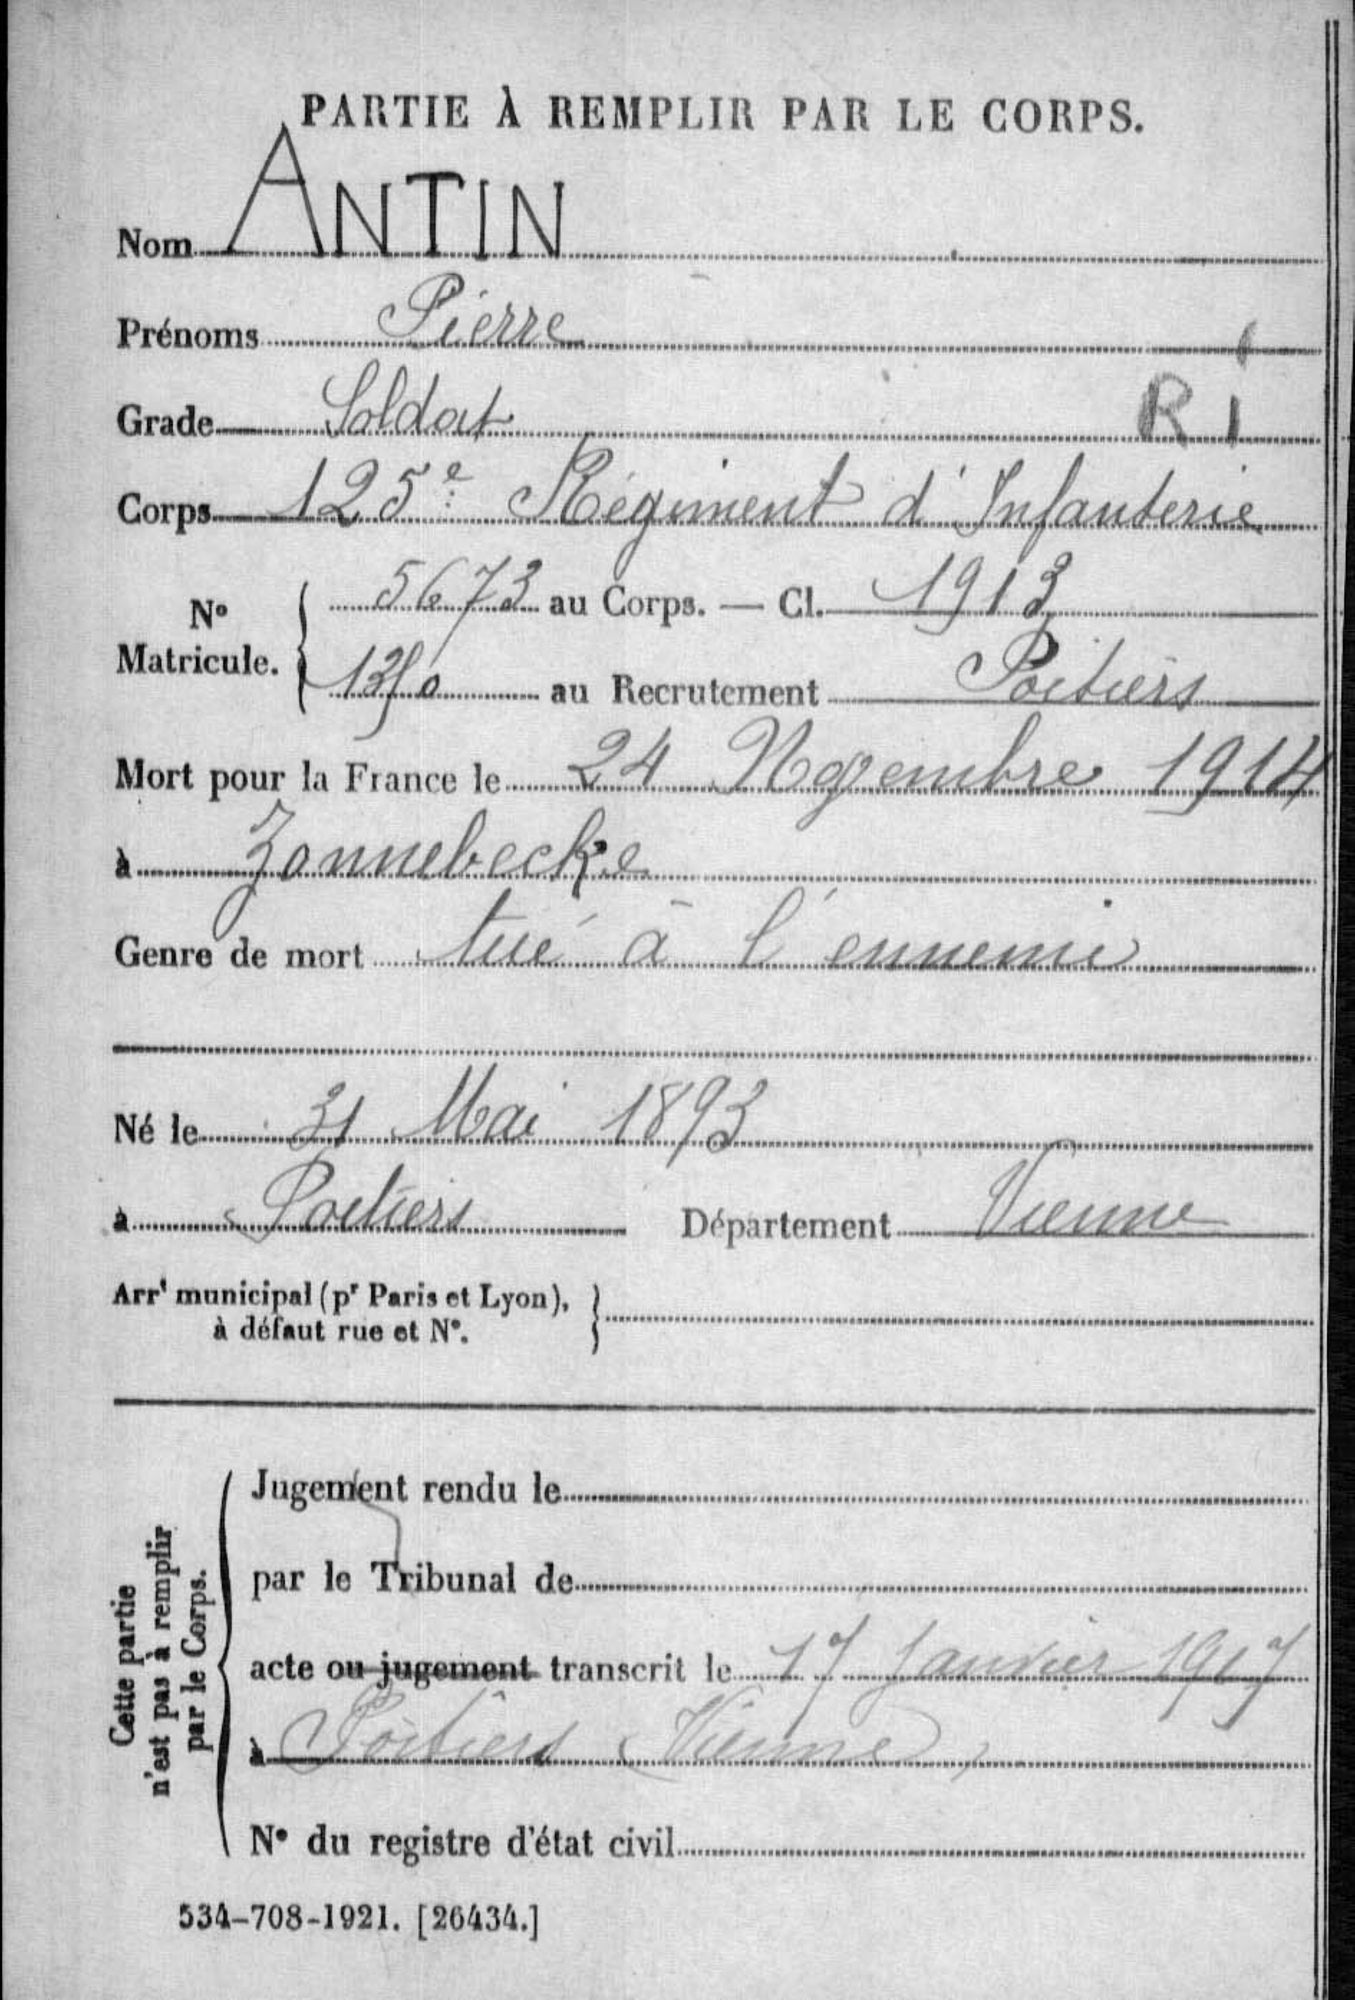 PARTIE À REMPLIR PAR LE CORPS.
Nom ANTIN
Prénoms Pierre
Grade Soldat
R i
Corps 125e Régiment d'Infanterie
No Matricule. { 5673 au Corps. — Cl. 1913
au Recrutement Poitiers
Mort pour la France le 24 Novembre 1914
à Zonnebecke
Genre de mort tué à l'ennemi
Né le 31 Mai 1893
à Poitiers Département Vienne
Arrt municipal (pr Paris et Lyon),
à défaut rue et No.
Cette partie
n'est pas à remplir
par le Corps.
Jugement rendu le
par le Tribunal de
acte ou jugement transcrit le 17 Janvier 1917
à Poitiers (Vienne)
No du registre d'état civil
534-708-1921. [26434.]